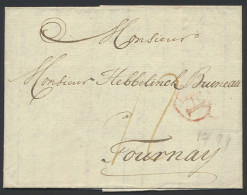 Monsieur
Monsieur Hebbelinck Bruneau
Tournay